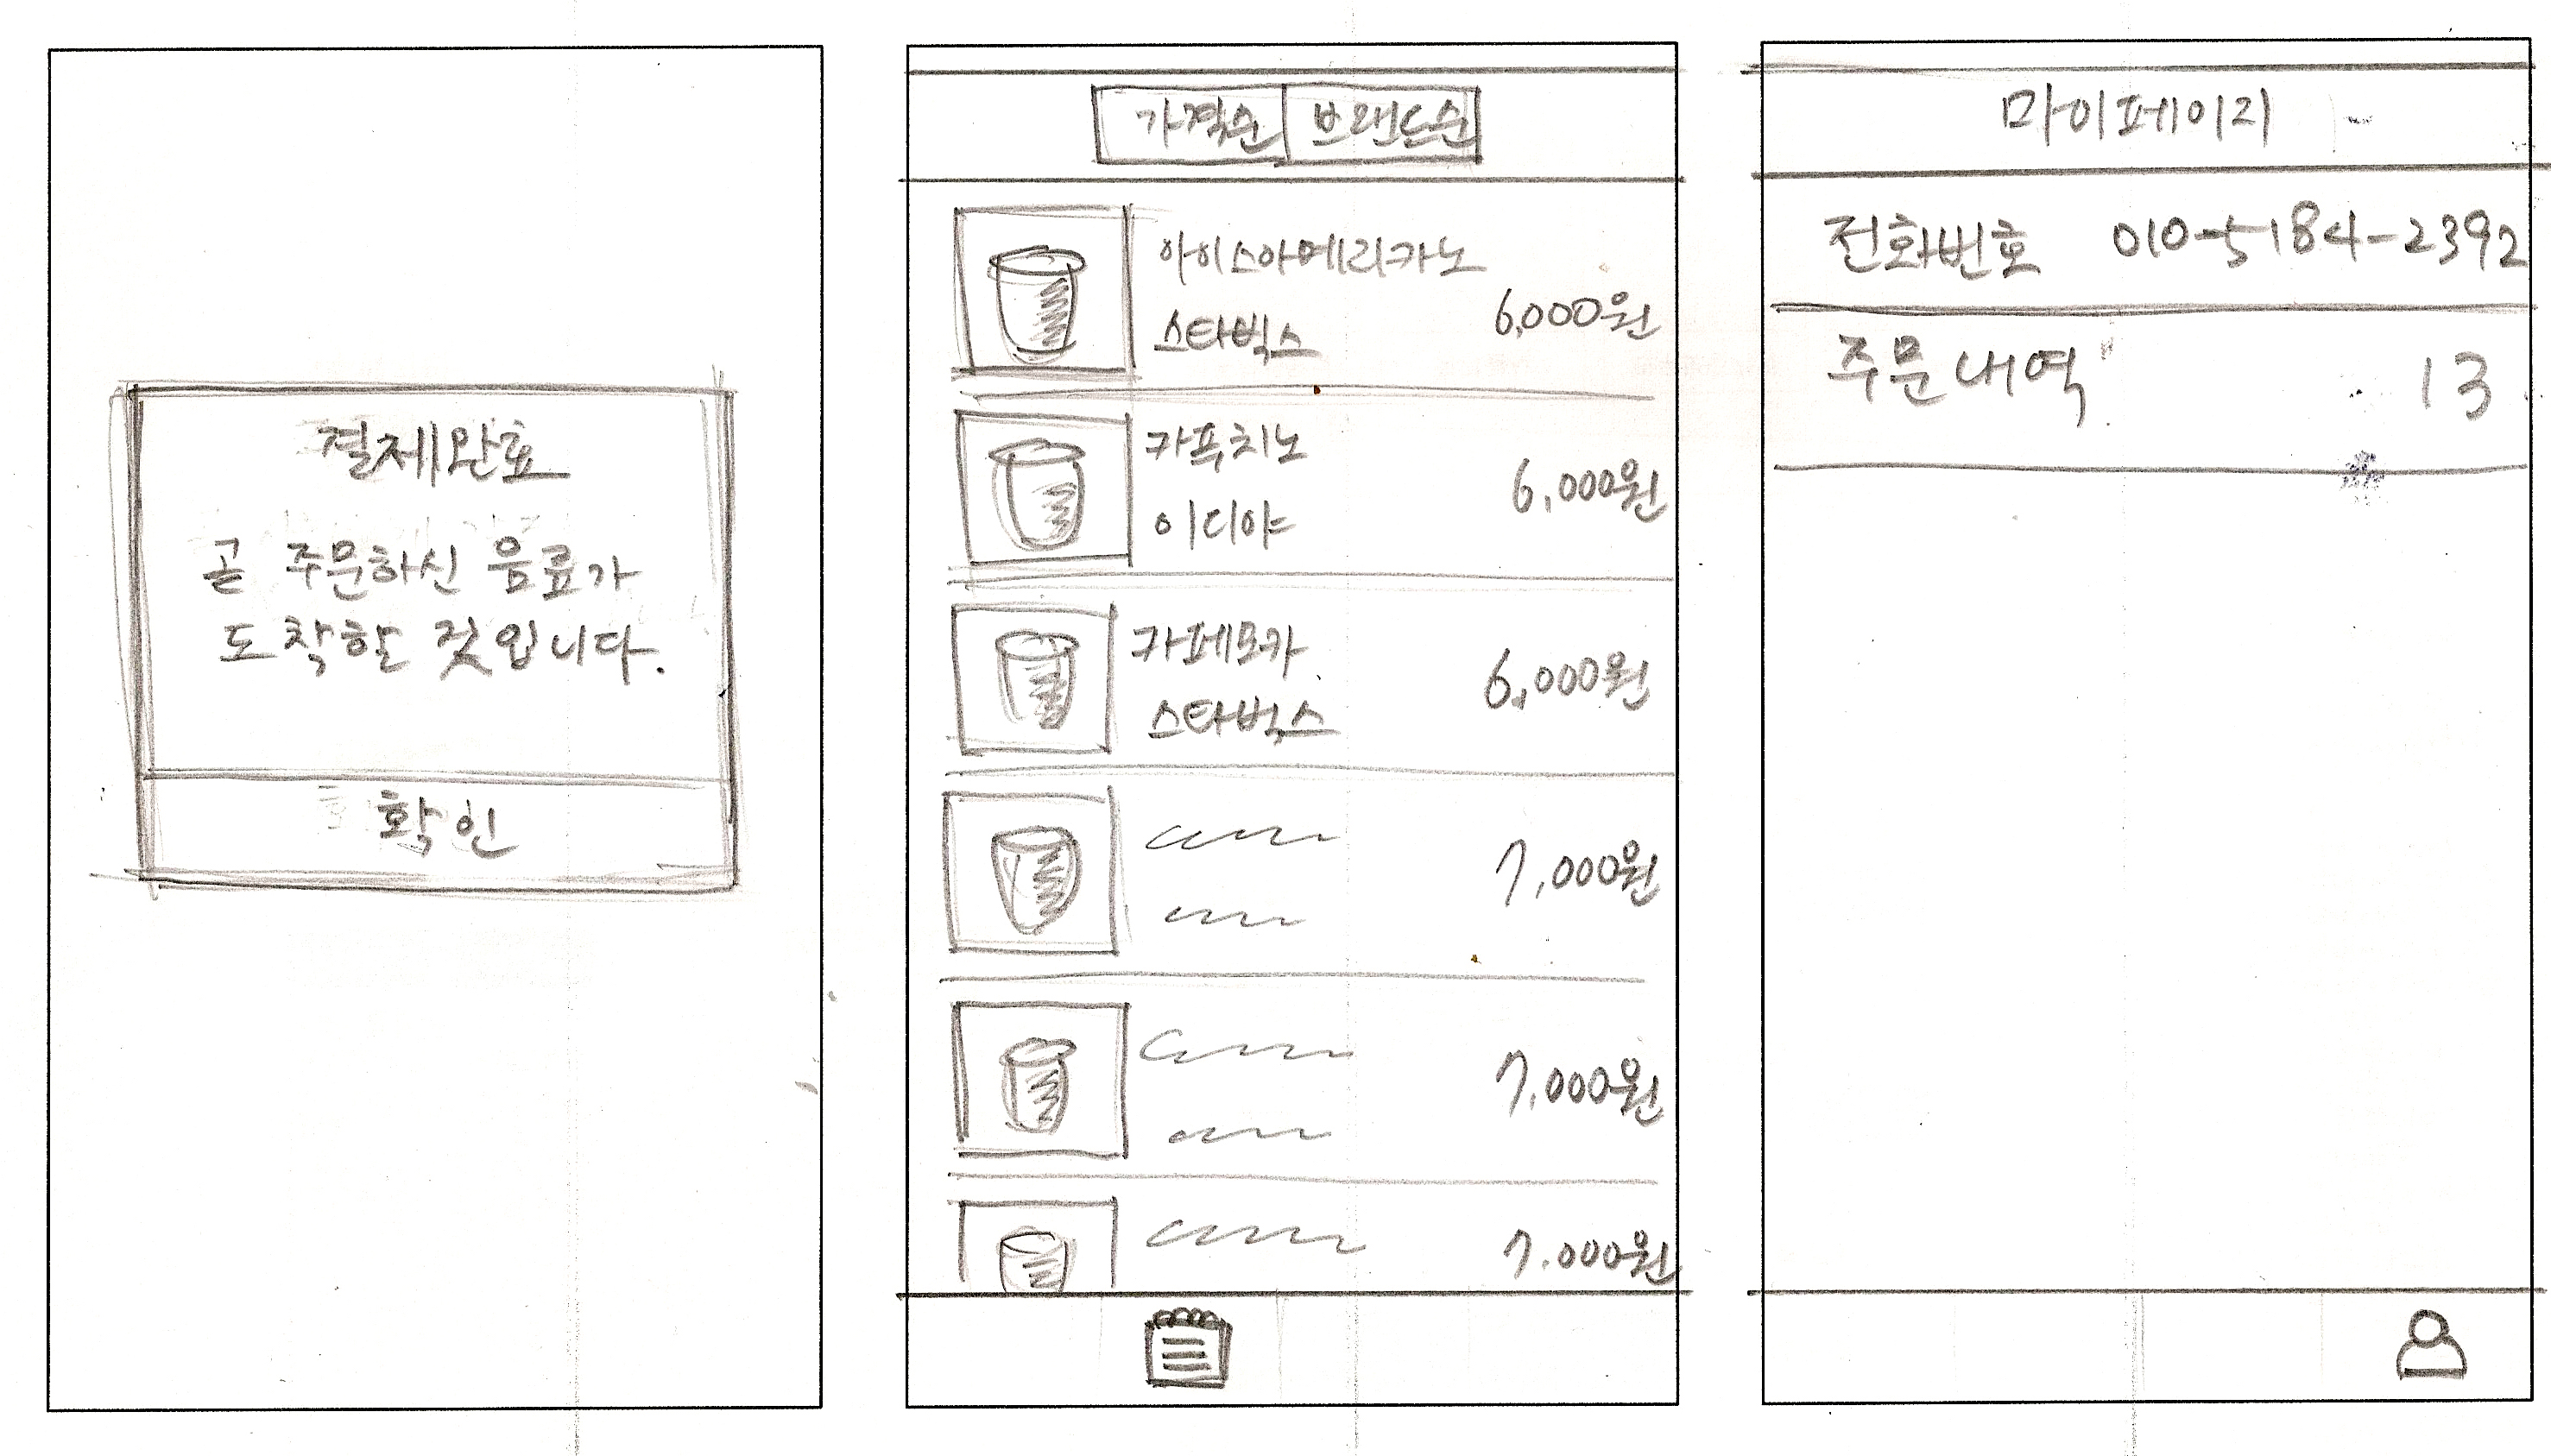 결제완료
곧 주문하신 음료가
도착할 것입니다.
확인
가격순 브랜드순
아이스아메리카노
스타벅스 6,000원
카푸치노
이디야 6,000원
카페모카
스타벅스 6,000원
7,000원
7,000원
7,000원
마이페이지
전화번호 010-5184-2392
주문내역 13